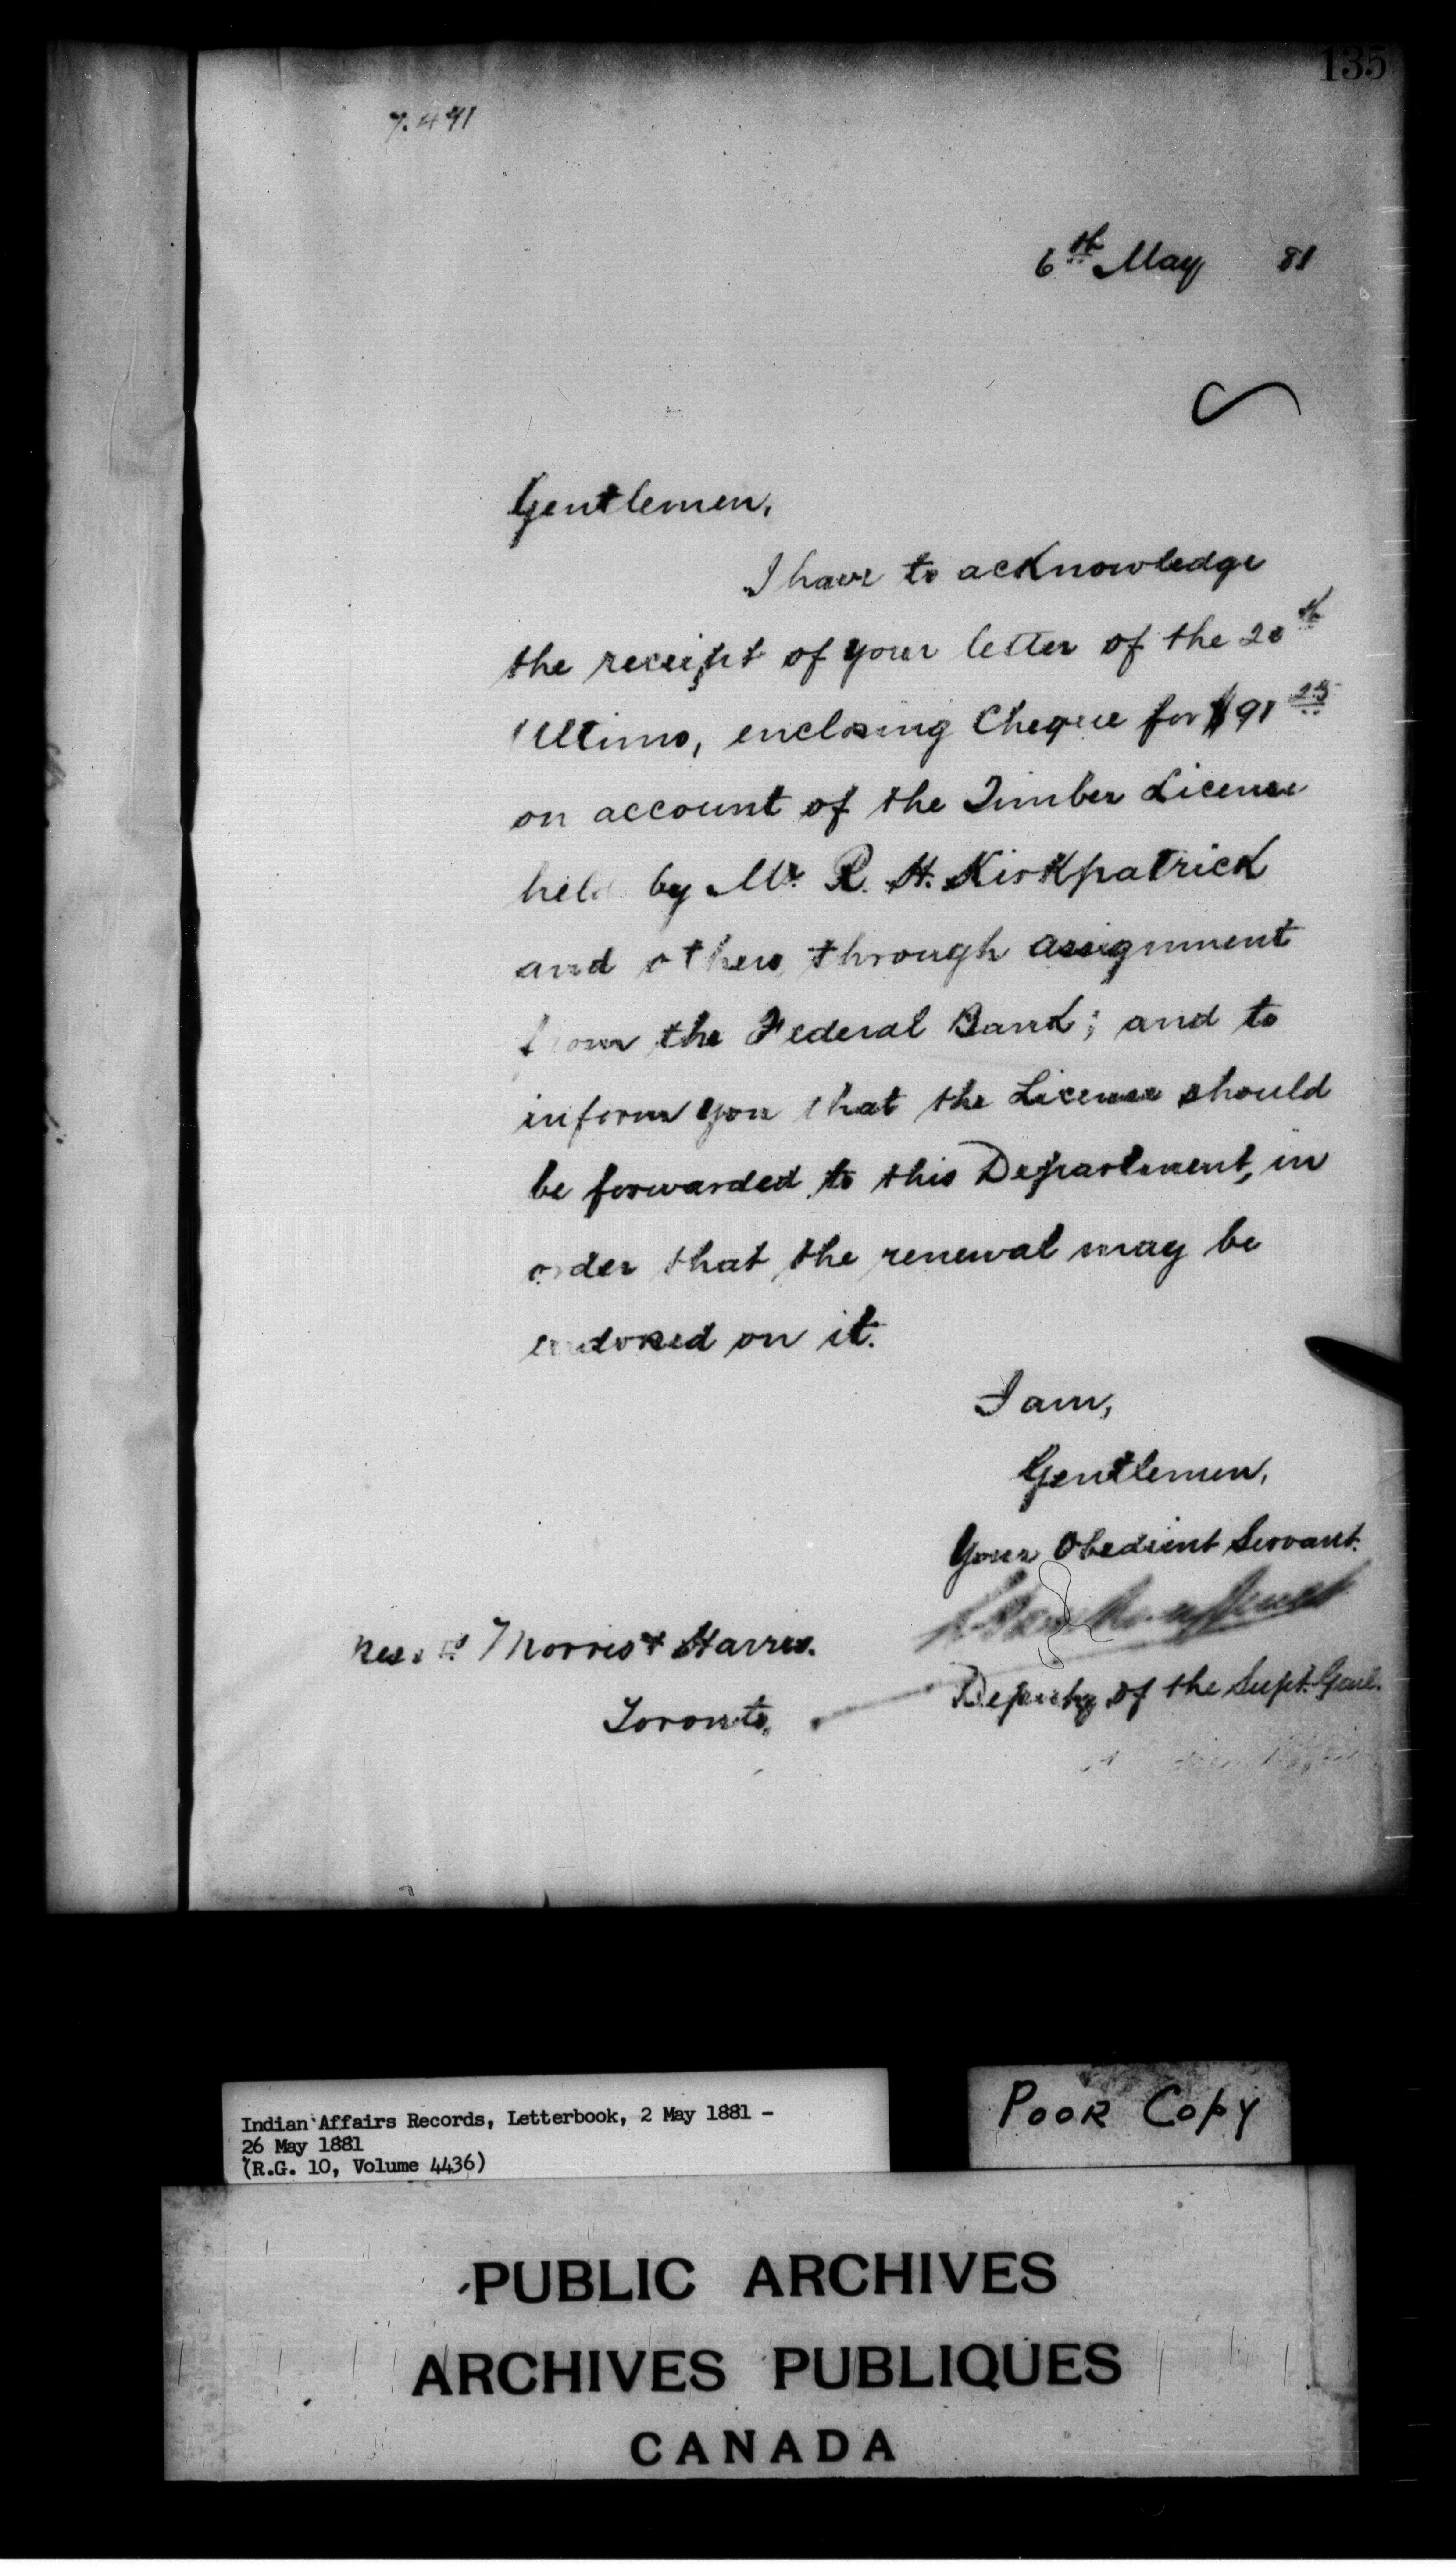 135
7.491
6th May 81
Gentlemen,
I have to acknowledge
the receipt of your letter of the 20th
Ultimo, enclosing Cheque for $91 25
on account of the Timber License
held by Mr. R. H. Kirkpatrick
and others through assignment
from the Federal Bank; and to
inform you that the License should
be forwarded to this Department, in
order that the renewal may be
endorsed on it.
I am,
Gentlemen,
Your Obedient Servant.
Messrs Morris & Harris.
Deputy of the Supt. Genl.
Toronto,
Indian Affairs Records, Letterbook, 2 May 1881 -
26 May 1881
(R.G. 10, Volume 4436)
POOR COPY
PUBLIC ARCHIVES
ARCHIVES PUBLIQUES
CANADA